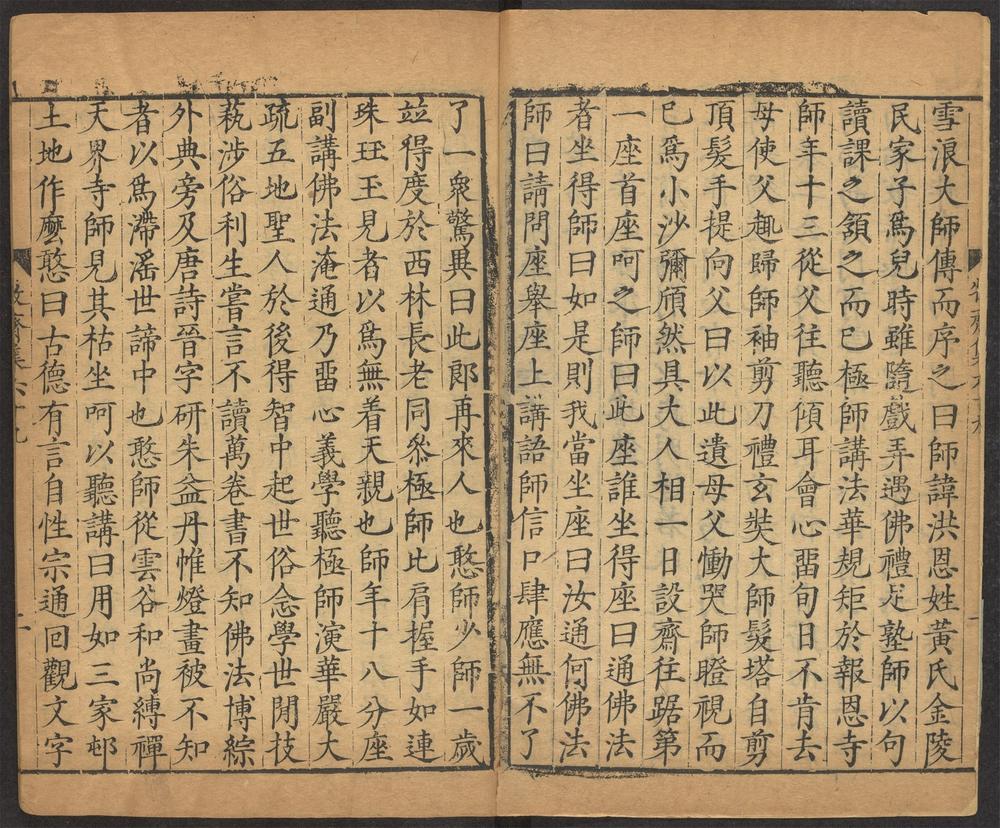 雪浪大師傳而序之曰師諱洪恩姓黃氏金陵
民家子爲兒時雖隨戲弄遇佛禮足塾師以句
讀課之頷之而已極師講法華規矩於報恩寺
師年十三從父往聽傾耳會心畱旬日不肯去
母使父趣歸師袖剪刀禮玄奘大師髮塔自剪
頂髮手提向父曰以此遺母父慟哭師瞪視而
已爲小沙彌頎然具大人相一日設齋往踞第
一座首座呵之師曰此座誰坐得座曰通佛法
者坐得師曰如是則我當坐座曰汝通何佛法
師曰請問座舉座上講語師信口肆應無不了
了一衆驚異曰此郎再來人也憨師少師一歲
竝得度於西林長老同叅極師比肩握手如連
珠珏玉見者以爲無着天親也師年十八分座
副講佛法淹通乃畱心義學聽極師演華嚴大
疏五地聖人於後得智中起世俗念學世閒技
藝涉俗利生嘗言不讀萬卷書不知佛法博綜
外典旁及唐詩晉字研朱益丹帷燈畫被不知
者以爲滯滛世諦中也憨師從雲谷和尚縛禪
天界寺師見其枯坐呵以聽講曰用如三家邨
土地作麽憨曰古德有言自性宗通回觀文字
牧齋集六十九
一